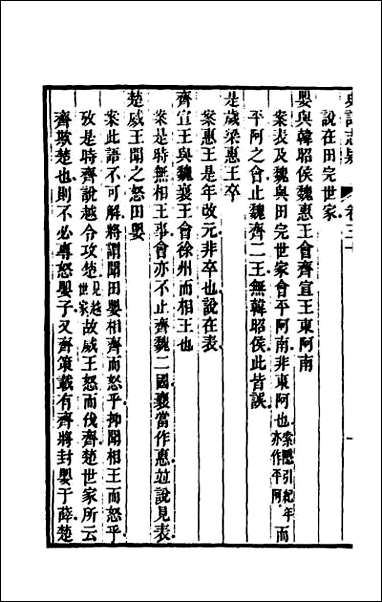 史記志疑 卷三十
說在田完世家
嬰與韓昭侯魏惠王會齊宣王東阿南
案表及魏與田完世家會平阿南非東阿也索隱引紀年而亦作平阿
平阿之會止魏齊二王無韓昭侯此皆誤
是歲梁惠王卒
案惠王是年改元非卒也說在表
齊宣王與魏襄王會徐州而相王也
案是時無相王事會亦不止齊魏二國襄當作惠竝說見表
楚威王聞之怒田嬰
案此語不可解將謂聞田嬰相齊而怒乎抑聞相王而怒乎
攷是時齊說越令攻楚見越世家故威王怒而伐齊楚世家所云
齊欺楚也則不必專怒嬰子又齊策載有齊將封嬰于薛楚